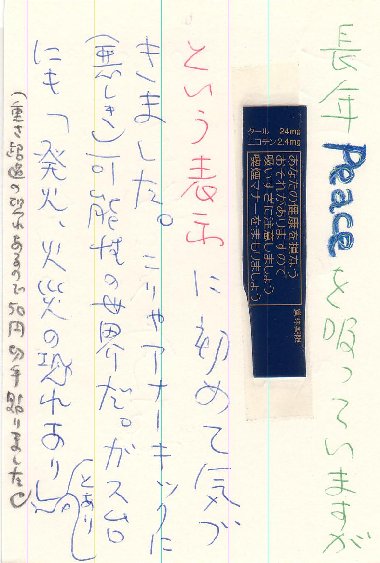 長年Peaceを吸っていますが
タール 24mg
ニコチン2.4mg
あなたの健康を損なう
おそれがありますので
吸いすぎに注意しましょう
喫煙マナーをまもりましょう
という表示に初めて気づ
きました。こりゃアナーキックに
(悪しき)可能性の世界だ。ガス台
にも「発火、火災の恐れあり」
とあり
(重さ超過の恐れがあるので50円切手貼りました)